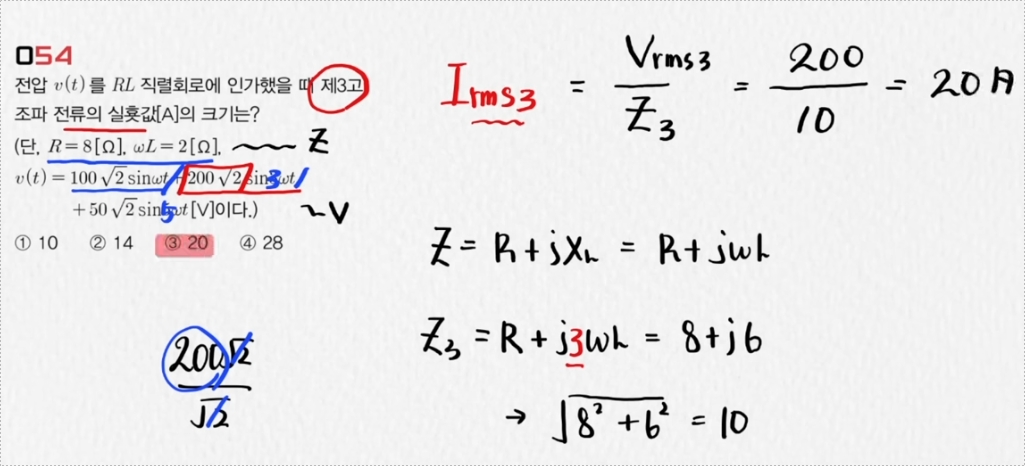 054
전압 v(t)를 RL 직렬회로에 인가했을 때 제3고
조파 전류의 실횻값[A]의 크기는?
(단, R=8[Ω], ωL=2[Ω], ~ Z
v(t)=100√2 sinωt+200√2 sin3ωt
+50√2 sin5ωt[V]이다.) ~V
① 10 ② 14 ③ 20 ④ 28
200√2
√2
Irms3 = Vrms3 / Z3 = 200 / 10 = 20A
Z = R+jXL = R+jωL
Z3 = R+j3ωL = 8+j6
→ √8²+6² = 10